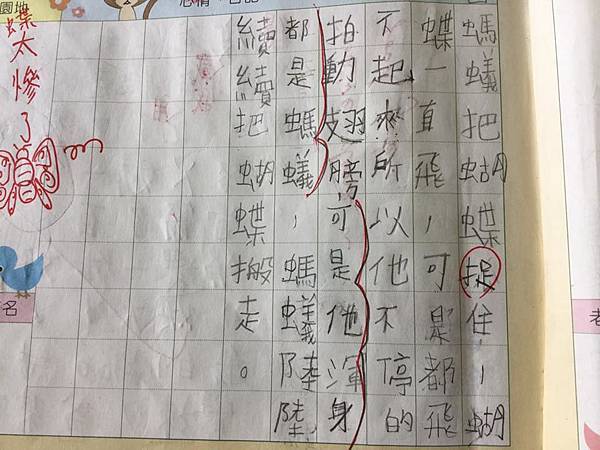 螞蟻把蝴蝶捉住，蝴
蝶一直飛，可是都飛
不起來所以他不停的
拍動翅膀可是他渾身
都是螞蟻，螞蟻陸陸
續續把蝴蝶搬走。
蝶太慘了
園地
名